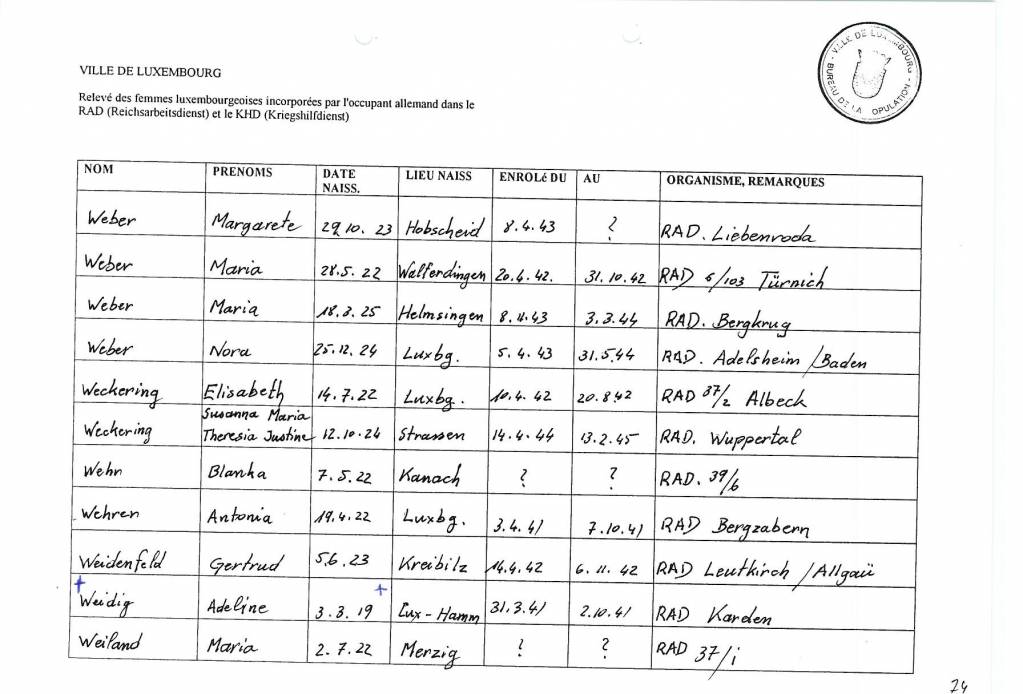 VILLE DE LUXEMBOURG
BUREAU DE LA POPULATION
VILLE DE LUXEMBOURG
Relevé des femmes luxembourgeoises incorporées par l'occupant allemand dans le
RAD (Reichsarbeitsdienst) et le KHD (Kriegshilfdienst)
NOM PRENOMS DATE NAISS. LIEU NAISS ENROLé DU AU ORGANISME, REMARQUES
Weber Margarete 29.10.23 Hobscheid 8.4.43 ? RAD. Liebenroda
Weber Maria 28.5.22 Walferdingen 20.4.42. 31.10.42 RAD 6/103 Türnich
Weber Maria 18.3.25 Helmsingen 8.11.43 3.3.44 RAD. Bergkrug
Weber Nora 25.12.24 Luxbg. 5.4.43 31.5.44 RAD. Adelsheim/Baden
Weckering Elisabeth 14.7.22 Luxbg. 10.4.42 20.8.42 RAD 37/2 Albeck
Weckering Susanna Maria Theresia Justine 12.10.24 Strassen 14.4.44 13.2.45 RAD. Wuppertal
Wehr Blanka 7.5.22 Kanach ? ? RAD. 39/6
Wehren Antonia 19.4.22 Luxbg. 3.4.41 7.10.41 RAD Bergzabern
Weidenfeld Gertrud 5.6.23 Kreibilz 14.4.42 6.11.42 RAD Leutkirch/Allgäu
+ Weidig Adeline + 3.3.19 Lux-Hamm 31.3.41 2.10.41 RAD Karden
Weiland Maria 2.7.22 Merzig ? ? RAD 37/i
24